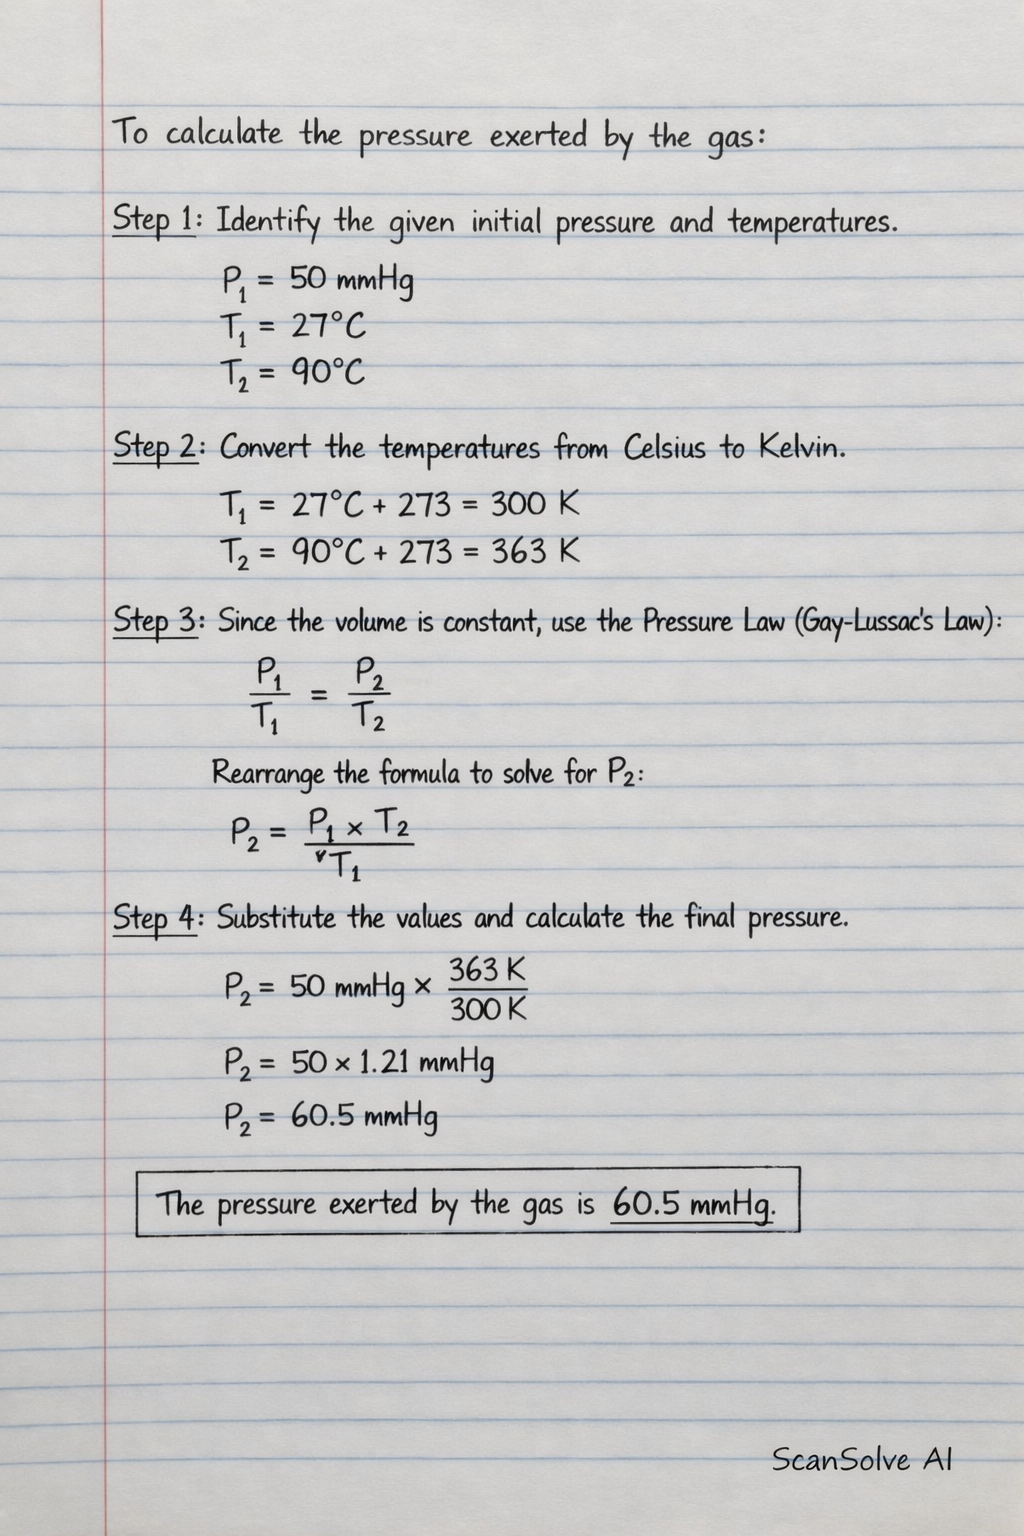 To calculate the pressure exerted by the gas:
Step 1: Identify the given initial pressure and temperatures.
P₁ = 50 mmHg
T₁ = 27°C
T₂ = 90°C
Step 2: Convert the temperatures from Celsius to Kelvin.
T₁ = 27°C + 273 = 300 K
T₂ = 90°C + 273 = 363 K
Step 3: Since the volume is constant, use the Pressure Law (Gay-Lussac's Law):
P₁/T₁ = P₂/T₂
Rearrange the formula to solve for P₂:
P₂ = P₁ × T₂ / T₁
Step 4: Substitute the values and calculate the final pressure.
P₂ = 50 mmHg × 363 K / 300 K
P₂ = 50 × 1.21 mmHg
P₂ = 60.5 mmHg
The pressure exerted by the gas is 60.5 mmHg.
ScanSolve AI